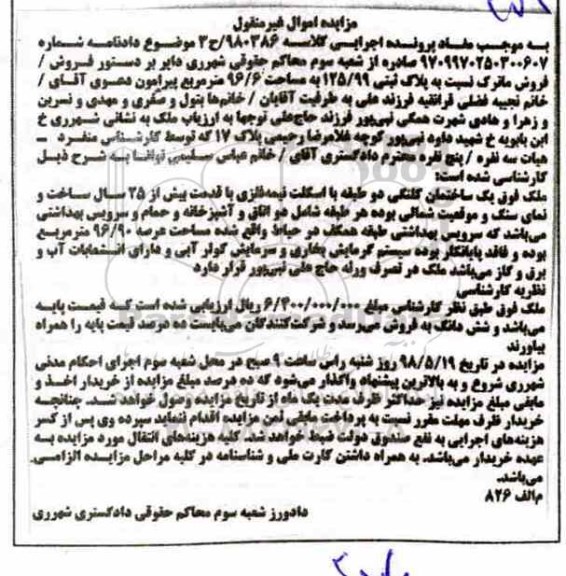 مزایده اموال غیرمنقول
به موجب مفاد پرونده اجرایی کلاسه ۹۸۰۳۸۶/ح۳ موضوع دادنامه شماره
۹۷۰۹۹۷۰۲۵۰۳۰۰۶۰۷ صادره از شعبه سوم محاکم حقوقی شهرری دایر بر دستور فروش /
فروش ماترک نسبت به پلاک ثبتی ۱۲۵/۹۹ به مساحت ۹۶/۶ مترمربع پیرامون دعوی آقای /
خانم نجیبه فضلی قراتقیه فرزند علی به طرفیت آقایان / خانم‌ها بتول و صغری و مهدی و نسرین
و زهرا و هادی شهرت همگی نبی‌پور فرزند حاج‌علی توجها به ارزیاب ملک به نشانی شهرری خ
ابن بابویه خ شهید داود نبی‌پور کوچه غلامرضا رحیمی پلاک ۱۷ که توسط کارشناس منفرد ـ
هیات سه نفره / پنج نفره محترم دادگستری آقای / خانم عباس سلیمی توافا به شرح ذیل
کارشناسی شده است:
ملک فوق یک ساختمان کلنگی دو طبقه با اسکلت نیمه‌فلزی با قدمت بیش از ۲۵ سال ساخت و
نمای سنگ و موقعیت شمالی بوده هر طبقه شامل دو اتاق و آشپزخانه و حمام و سرویس بهداشتی
می‌باشد که سرویس بهداشتی طبقه همکف در حیاط واقع شده مساحت عرصه ۹۶/۹۰ مترمربع
بوده و فاقد پایانکار بوده سیستم گرمایش بخاری و سرمایش کولر آبی و دارای انشعابات آب و
برق و گاز می‌باشد ملک در تصرف ورثه حاج علی نبی‌پور قرار دارد
نظریه کارشناسی
ملک فوق طبق نظر کارشناس مبلغ ۶/۴۰۰/۰۰۰/۰۰۰ ریال ارزیابی شده است که قیمت پایه
می‌باشد و شش دانگ به فروش می‌رسد و شرکت‌کنندگان می‌بایست ده درصد قیمت پایه را همراه
بیاورند
مزایده در تاریخ ۹۸/۵/۱۹ روز شنبه راس ساعت ۹ صبح در محل شعبه سوم اجرای احکام مدنی
شهرری شروع و به بالاترین پیشنهاد واگذار می‌شود که ده درصد مبلغ مزایده از خریدار اخذ و
مابقی مبلغ مزایده نیز حداکثر ظرف مدت یک ماه از تاریخ مزایده وصول خواهد شد. چنانچه
خریدار ظرف مهلت مقرر نسبت به پرداخت مابقی ثمن مزایده اقدام ننماید سپرده وی پس از کسر
هزینه‌های اجرایی به نفع صندوق دولت ضبط خواهد شد. کلیه هزینه‌های انتقال مورد مزایده به
عهده خریدار می‌باشد. به همراه داشتن کارت ملی و شناسنامه در کلیه مراحل مزایده الزامی
می‌باشد.
م‌الف ۸۲۶
دادورز شعبه سوم محاکم حقوقی دادگستری شهرری